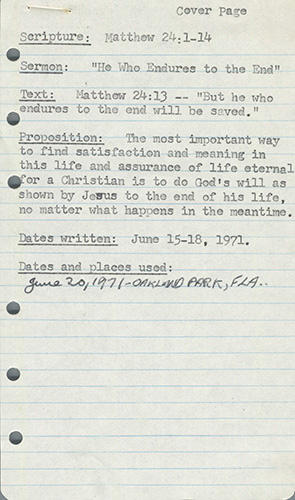 Cover Page
Scripture: Matthew 24:1-14
Sermon: "He Who Endures to the End"
Text: Matthew 24:13 -- "But he who
endures to the end will be saved."
Proposition: The most important way
to find satisfaction and meaning in
this life and assurance of life eternal
for a Christian is to do God's will as
shown by Jesus to the end of his life,
no matter what happens in the meantime.
Dates written: June 15-18, 1971.
Dates and places used:
June 20, 1971-OAKLAND PARK, FLA..